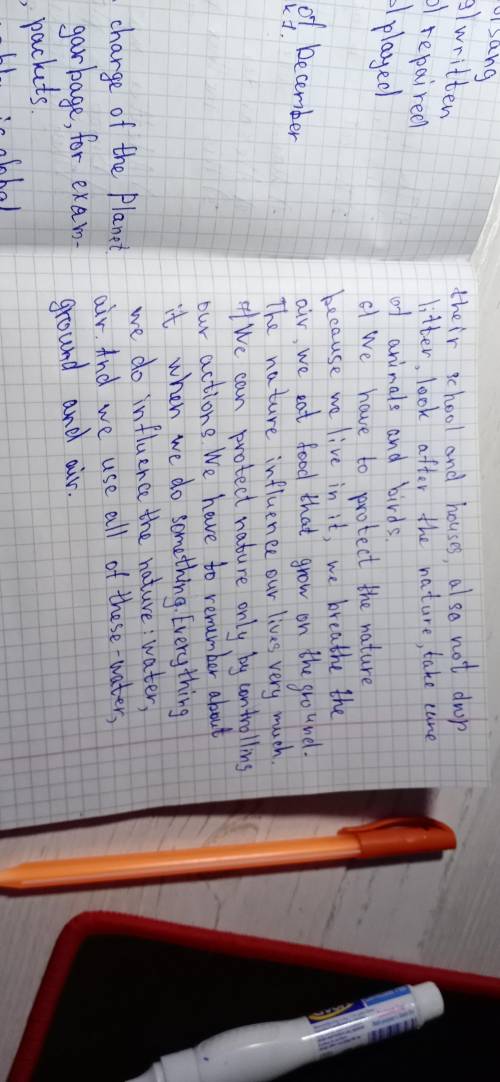 sang
g) written
) repaired
) played
of December
k7.
change of the Planet
garbage, for exam-
packets.
is global
their school and houses, also not drop
litter, look after the nature, take cure
of animals and birds.
6) We have to protect the nature
because we live in it, we breathe the
air, we eat food that grow on the ground.
The nature influence our lives very much.
7) We can protect nature only by controlling
our actions. We have to remember about
it when we do something. Everything
we do influence the nature: water,
air. And we use all of these - water,
ground and air.